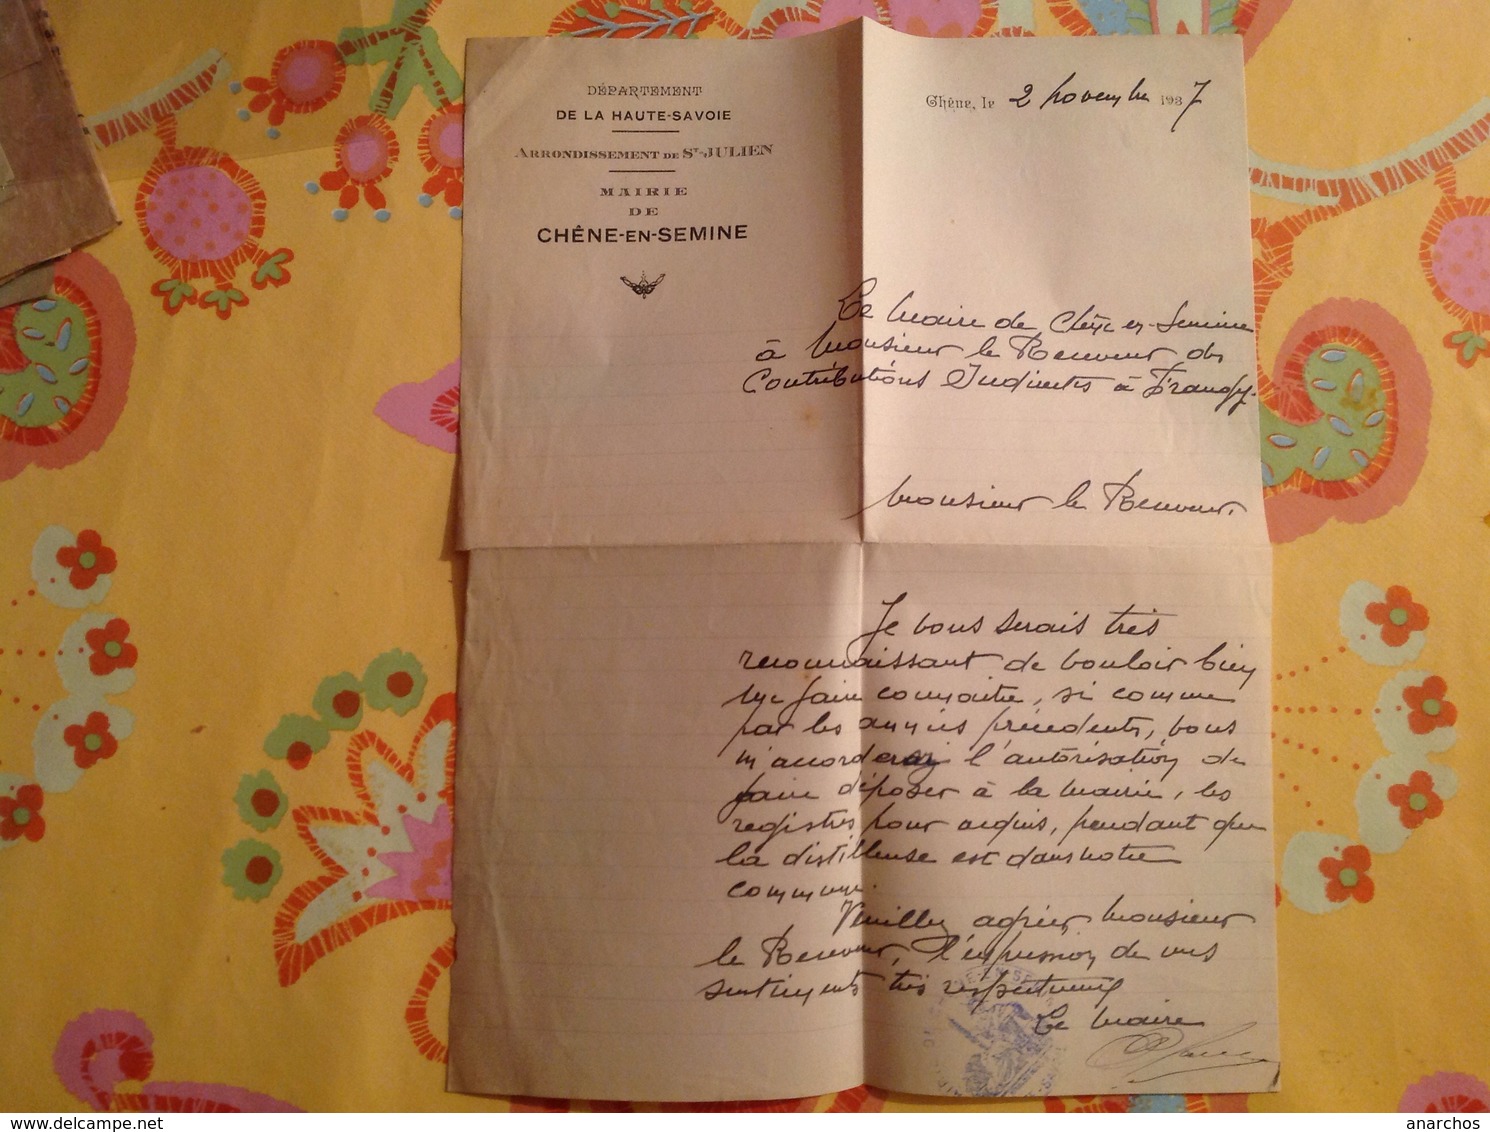 DÉPARTEMENT
DE LA HAUTE-SAVOIE
ARRONDISSEMENT DE ST-JULIEN
MAIRIE
DE
CHÊNE-EN-SEMINE
Chêne, le 2 novembre 1937
Le Maire de Chêne en-Semine
à Monsieur le Receveur des
Contributions Indirectes à Frangy.
Monsieur le Receveur.
Je vous serais très
reconnaissant de vouloir bien
me faire connaitre, si comme
par les années précédentes, vous
m'accorderez l'autorisation de
faire déposer à la Mairie, les
registres pour acquis, pendant que
la distilleuse est dans notre
commune.
Veuillez agréer, Monsieur
le Receveur, l'expression de mes
sentiments très respectueux
Le Maire
anarchos